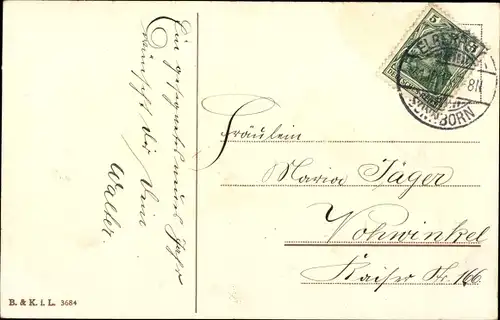 Ein gesegnetes neues Jahr
wünscht dir Dein
Walter.
5
ELBERFELD
8N
SONNBORN
Fräulein
Maria Jäger
Vohwinkel
Kaiser Str. 166.
B. & K. i. L. 3684